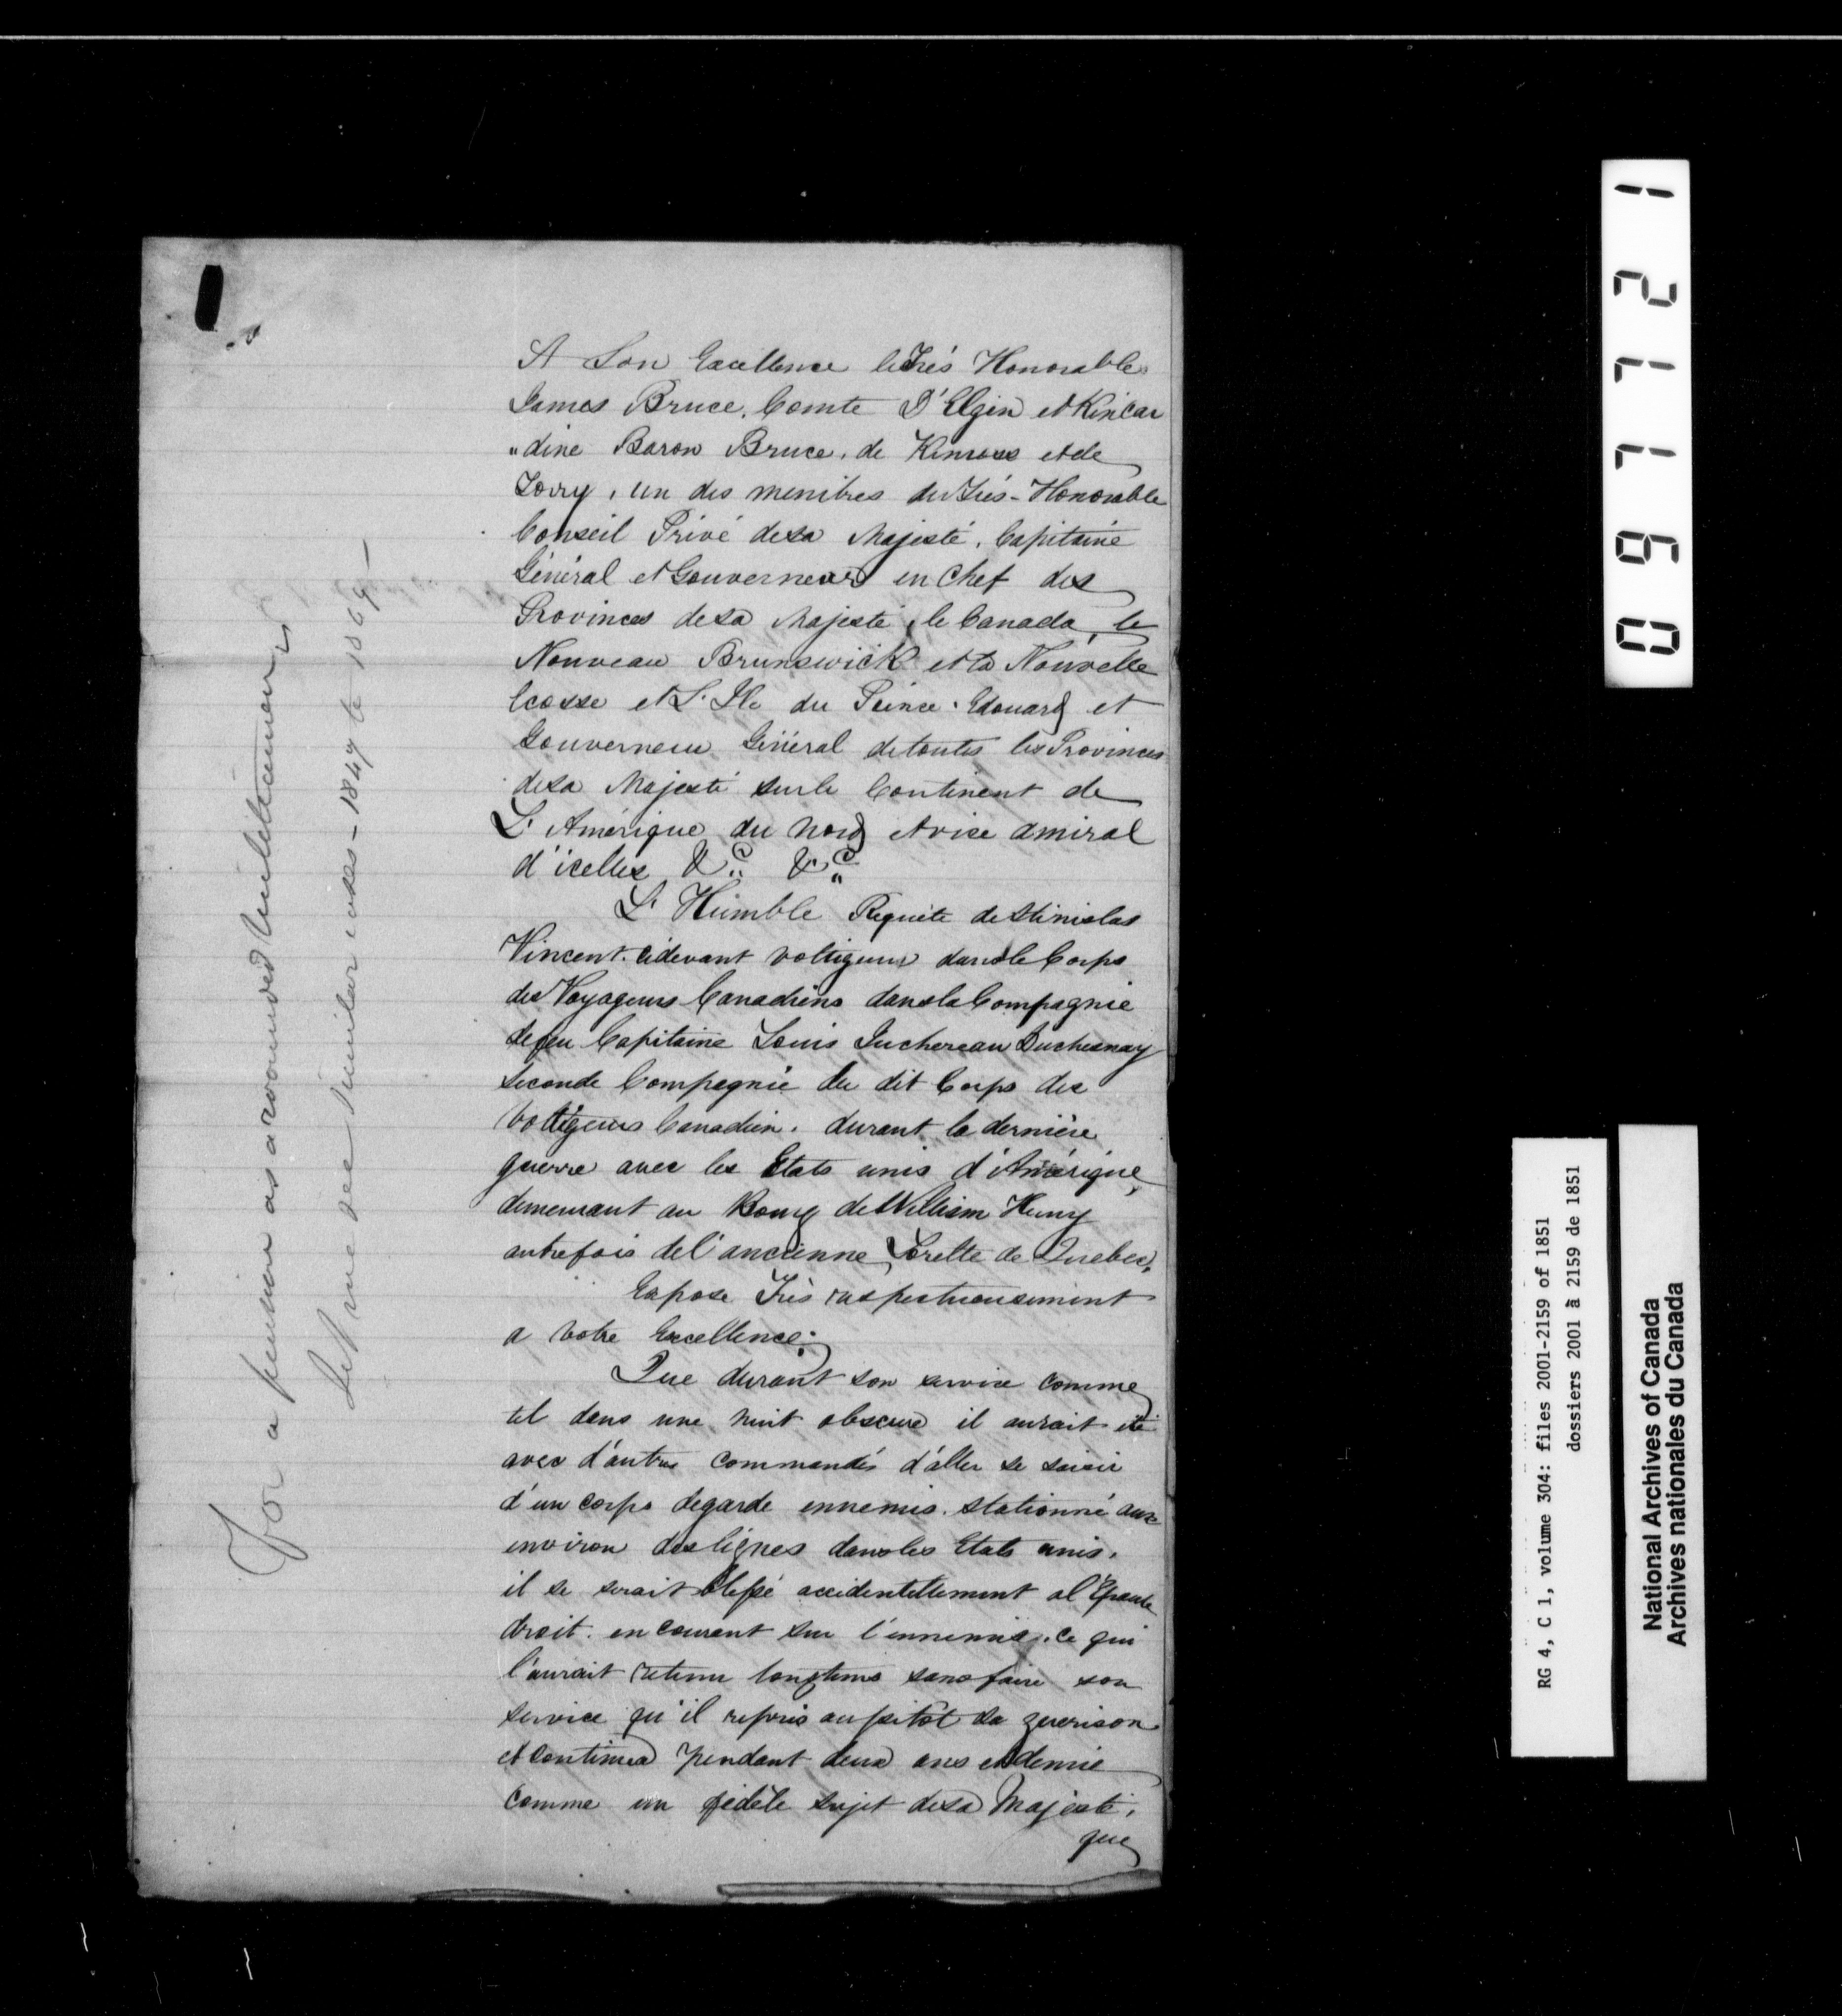 A Son Excellence le Très Honorable
James Bruce, Comte D'Elgin et Kincar
"dine Baron Bruce, de Kinross et de
Torry, un des membres du Très-Honorable
Conseil Privé de sa Majesté, Capitaine
Général et Gouverneur en Chef des
Provinces de sa Majesté, le Canada, le
Nouveau Brunswick et la Nouvelle
Ecosse et L'Ile du Prince Edouard et
Gouverneur Général de toutes les Provinces
de sa Majesté sur le Continent de
L'Amérique du Nord et vice amiral
d'icelles &c. &c.
L'Humble Requête de Stinislas
Vincent cidevant voltigeur dans le Corps
des Voyageurs Canadiens dans la Compagnie
de feu Capitaine Louis Juchereau Duchesnay
seconde Compagnie du dit Corps des
Voltigeurs Canadien. durant la dernière
guerre avec les Etats unis d'Amérique,
demeurant au Bourg de William Henry
autrefois de l'ancienne Lorette de Quebec,
Expose Très respectueusement
a Votre Excellence.
Que durant son service comme
tel dans une nuit obscure il aurait été
avec d'autres commandés d'aller se saisir
d'un corps de garde ennemis stationné aux
environ des lignes dans les Etats unis,
il se serait blessé accidentellement a l'Epaule
droit en courant sur l'ennemis, ce qui
l'aurait retenu longtems sans faire son
service qu'il repris aussitot sa guerison
et continua pendant deux ans et demie
comme un fidèle sujet de sa Majesté,
que
For a pension as a wounded Militiaman
Let me see similar cases - 1847 to 1869 -
09771 2 1
RG 4, C 1, volume 304: files 2001-2159 of 1851
dossiers 2001 à 2159 de 1851
National Archives of Canada
Archives nationales du Canada